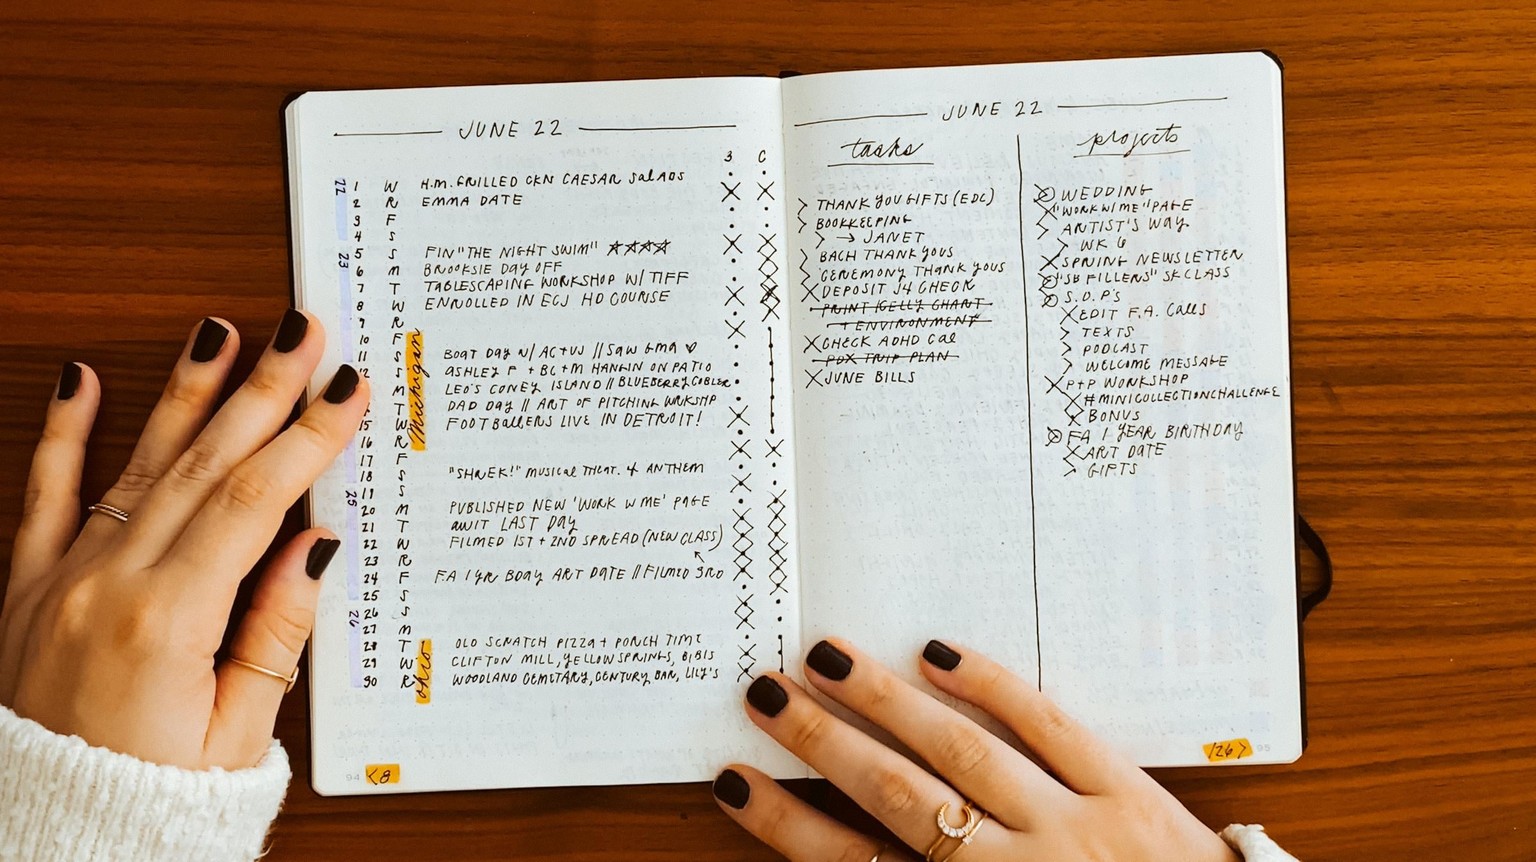 JUNE 22
B C
22
1 W H.M. GRILLED CKN CAESAR SALADS
2 R EMMA DATE
3 F
4 S
5 S FIN "THE NIGHT SWIM" ☆☆☆☆
23
6 M BROOKSIE DAY OFF
7 T TABLESCAPING WORKSHOP W/ TIFF
8 W ENROLLED IN ECJ HD COURSE
9 R
10 F
Michigan
11 S BOAT DAY W/ AC+VJ // SAW GMA ♡
12 S ASHLEY F + BC + M HANGIN ON PATIO
M LEO'S CONEY ISLAND // BLUEBERRY COBLER
T DAD DAY // ART OF PITCHING WRKSHP
15 W FOOTBALLERS LIVE IN DETROIT!
16 R
17 F
18 S "SHREK!" MUSICAL THEAT. & ANTHEM
19 S
25
20 M PUBLISHED NEW 'WORK W ME' PAGE
21 T AWIT LAST DAY
22 W FILMED 1ST + 2ND SPREAD (NEW CLASS)
23 R
24 F FA 1 YR BDAY ART DATE // FILMED 3RD
25 S
26 S
26
27 M
28 T OLD SCRATCH PIZZA + PORCH TIME
Ohio
29 W CLIFTON MILL, YELLOW SPRINGS, BIBIS
30 R WOODLAND CEMETARY, CENTURY BAR, LILY'S
94 <8
JUNE 22
tasks
> THANK YOU GIFTS (EDC)
> BOOKKEEPING
> → JANET
> BACH THANK YOUS
> CEREMONY THANK YOUS
X DEPOSIT J4 CHECK
PRINT KELLY CHART
+ ENVIRONMENT
X CHECK ADHD CAL
PDX TRIP PLAN
X JUNE BILLS
projects
WEDDING
X "WORK W/ ME" PAGE
> ARTIST'S WAY
> WK 6
X SPRING NEWSLETTER
"SB FILLERS" SK CLASS
S.O.P'S
X EDIT F.A. CALLS
> TEXTS
> PODCAST
> WELCOME MESSAGE
X P+P WORKSHOP
X #MINICOLLECTIONCHALLENGE
X BONUS
FA 1 YEAR BIRTHDAY
X ART DATE
> GIFTS
/26> 95